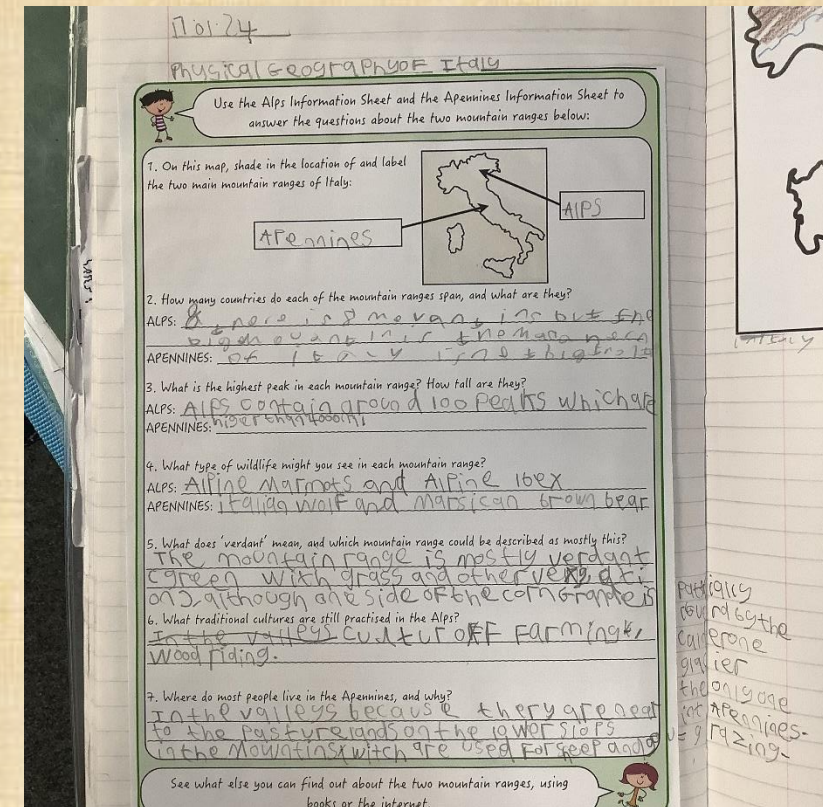 17.01.24
Physical Geography of Italy
Use the Alps Information Sheet and the Apennines Information Sheet to
answer the questions about the two mountain ranges below:
1. On this map, shade in the location of and label
the two main mountain ranges of Italy:
Alps
Apennines
2. How many countries do each of the mountain ranges span, and what are they?
ALPS: 8 there is 8 but the
APENNINES: of
3. What is the highest peak in each mountain range? How tall are they?
ALPS: Alps contain around 100 peaks which are
APENNINES: higer than 4000m
4. What type of wildlife might you see in each mountain range?
ALPS: Alpine Marmots and Alpine ibex
APENNINES: italian wolf and Marsican brown bear
5. What does 'verdant' mean, and which mountain range could be described as mostly this?
The mountain range is mostly verdant
(green with grass and other
on), although one side of the corno Grande is
partially
by the
Calderone
glacier
the only one
int Apennines.
6. What traditional cultures are still practised in the Alps?
In the valleys cultur off Farming,
wood riding.
7. Where do most people live in the Apennines, and why?
In the valleys because thery are near
to the pasture lands on the lower slops
in the Mountins witch are used for sheep and
grazing.
See what else you can find out about the two mountain ranges, using
books or the internet.